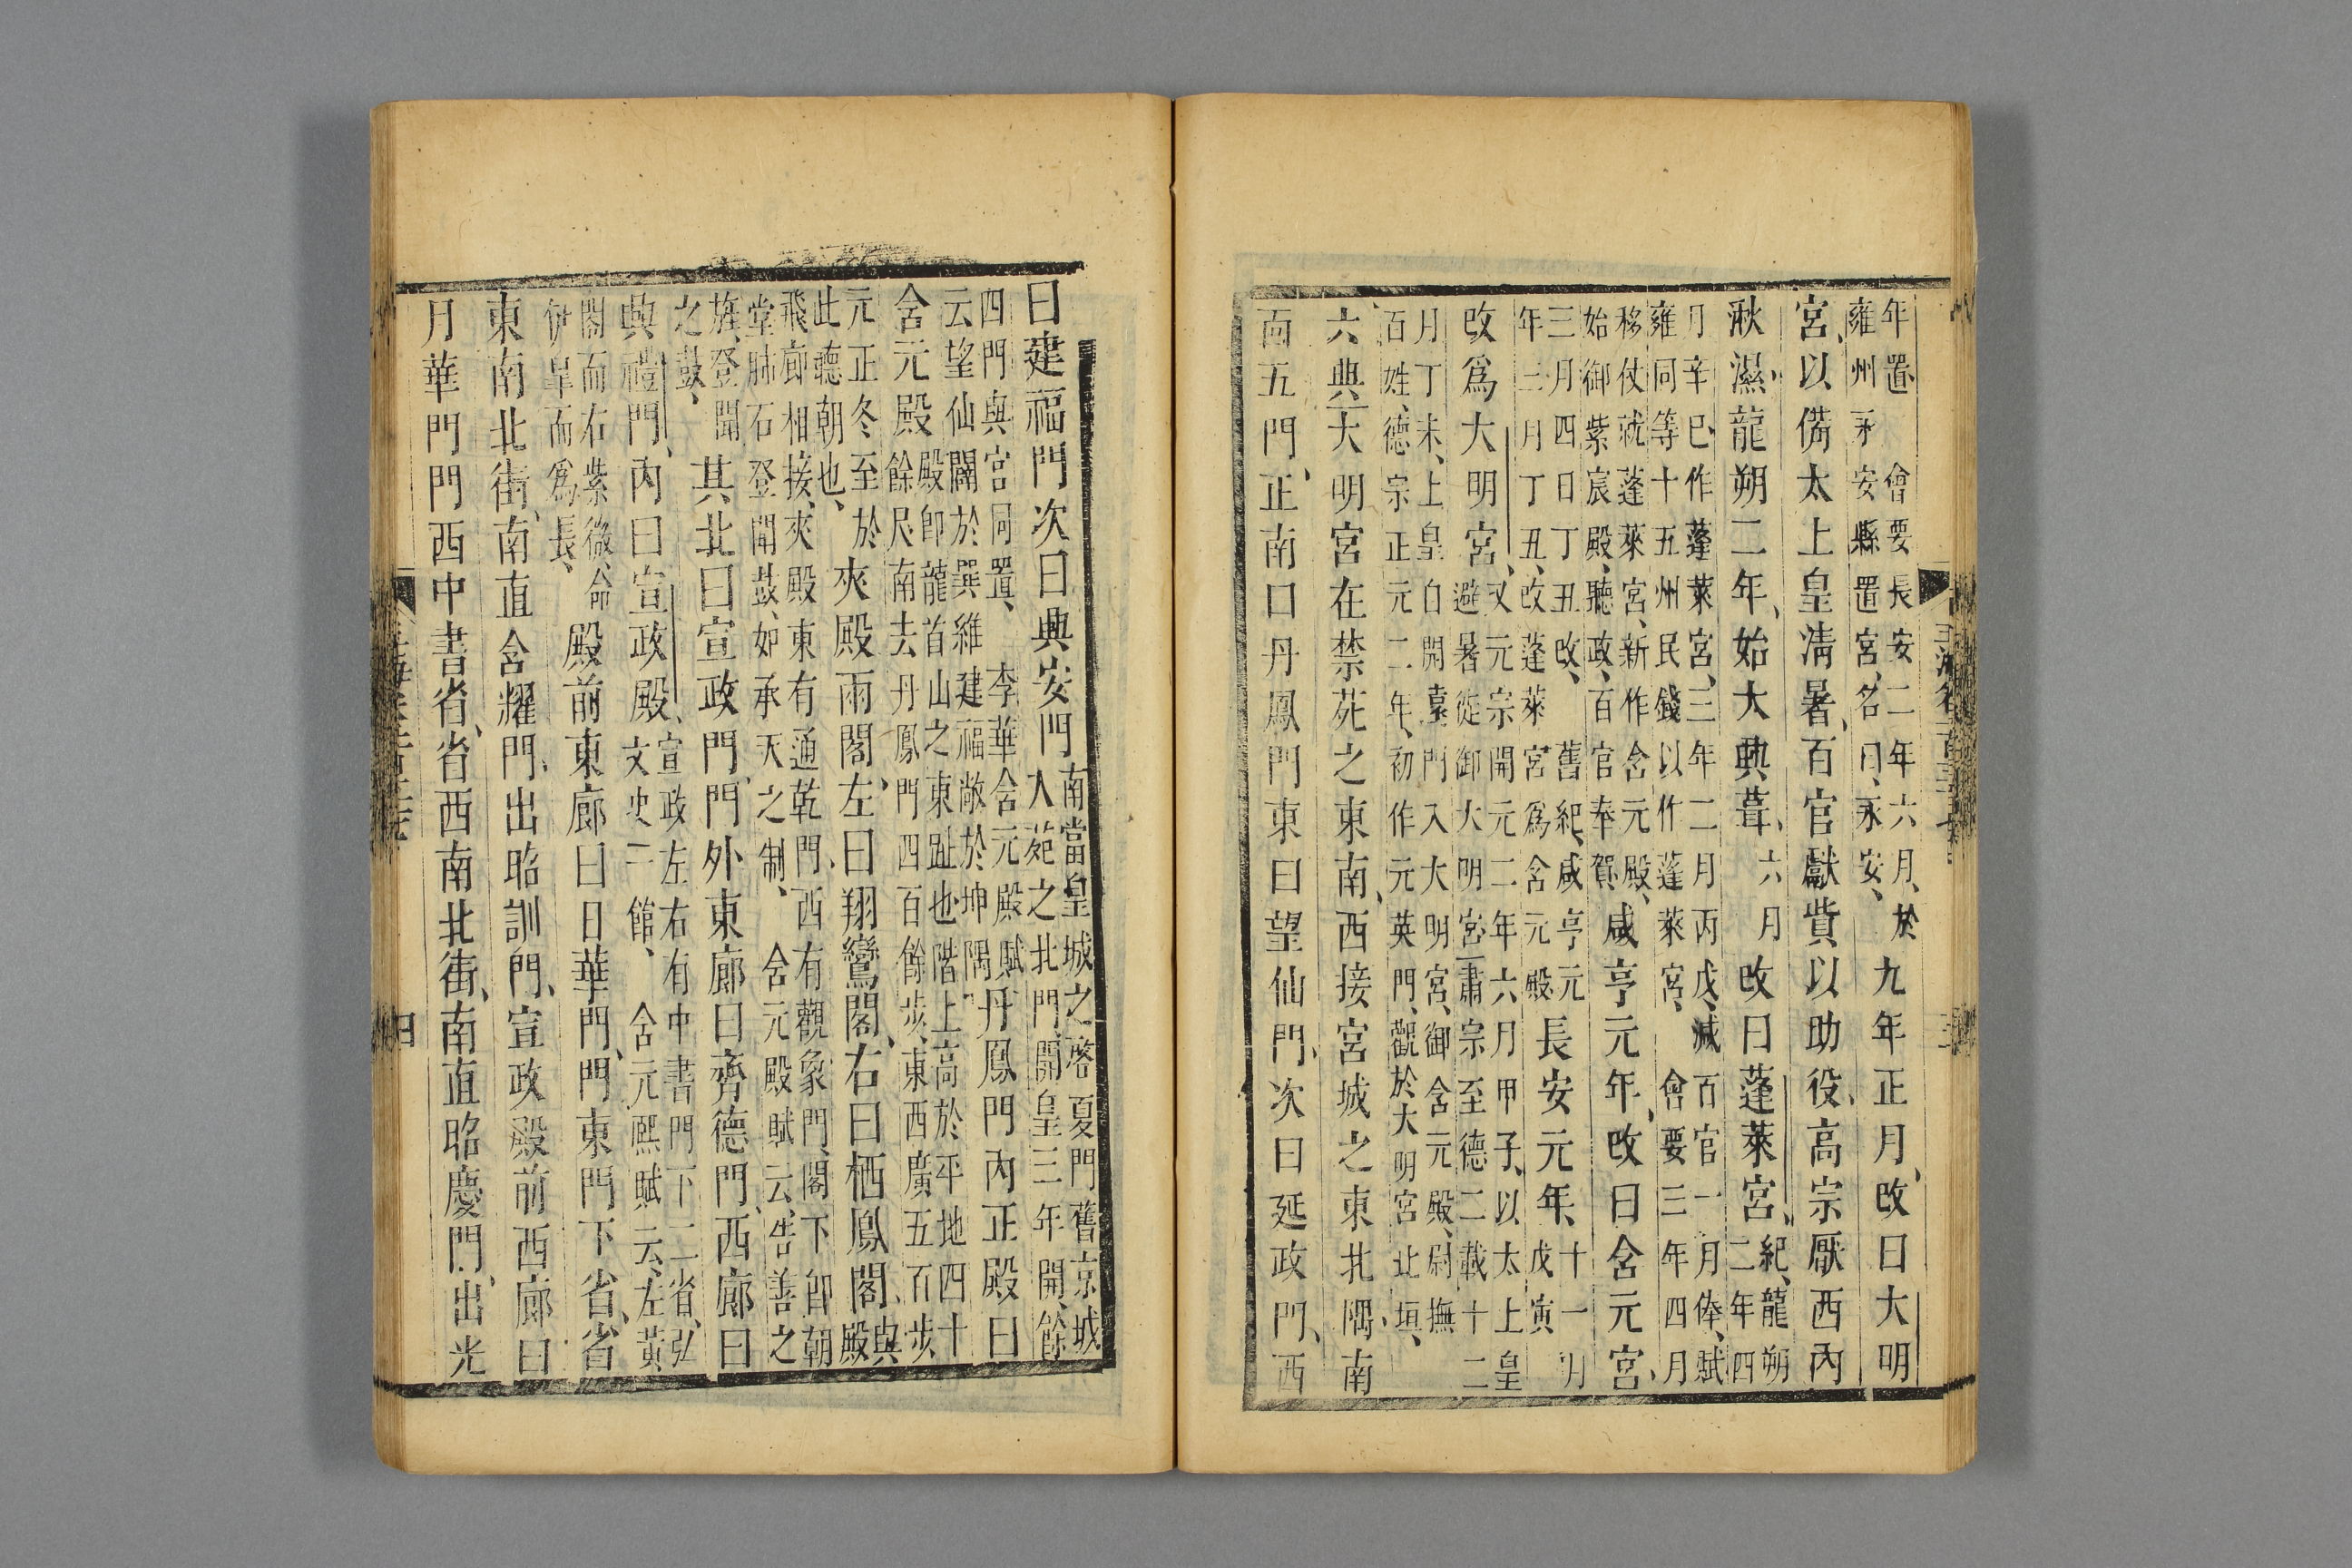 年置會要長安二年六月於雍州永安縣置宮名曰永安九年正月改曰大明
宮以備太上皇清暑百官獻貲以助役高宗厭西內
湫濕龍朔二年始大興葺六月改曰蓬萊宮紀龍朔二年四
月辛巳作蓬萊宮三年二月丙戌減百官一月俸賦雍同等十五州民錢以作蓬萊宮會要三年四月
移仗就蓬萊宮新作含元殿始御紫宸殿聽政百官奉賀咸亨元年改曰含元宮
三月四日丁丑改舊紀咸亨元年三月丁丑改蓬萊宮爲含元殿長安元年十一月戊寅
改爲大明宮又元宗開元二年六月甲子以太上皇避暑徙御大明宮肅宗至德二載十二
月丁未上皇自開遠門入大明宮御含元殿尉撫百姓德宗正元二年初作元英門觀於大明宮北垣
六典大明宮在禁苑之東南西接宮城之東北隅南
面五門正南曰丹鳳門東曰望仙門次曰延政門西
曰建福門次曰興安門南當皇城之啓夏門舊京城入苑之北門開皇三年開餘
四門與宮同置李華含元殿賦云望仙闢於巽維建福敞於坤隅丹鳳門內正殿曰
含元殿殿卽龍首山之東趾也階上高於平地四十餘尺南去丹鳳門四百餘步東西廣五百步
元正冬至於此聽朝也夾殿兩閣左曰翔鸞閣右曰栖鳳閣與殿
飛廊相接夾殿東有通乾門西有觀象門閣下卽朝堂肺石登聞鼓如承天之制含元殿賦云告善之
旌登聞之鼓其北曰宣政門門外東廊曰齊德門西廊曰
興禮門內曰宣政殿宣政左右有中書門下二省弘文史二館含元熙賦云左黃
閣而右紫微命伊皐而爲長殿前東廊曰日華門門東門下省省
東南北街南直含耀門出昭訓門宣政殿前西廊曰
月華門門西中書省省西南北街南直昭慶門出光
四